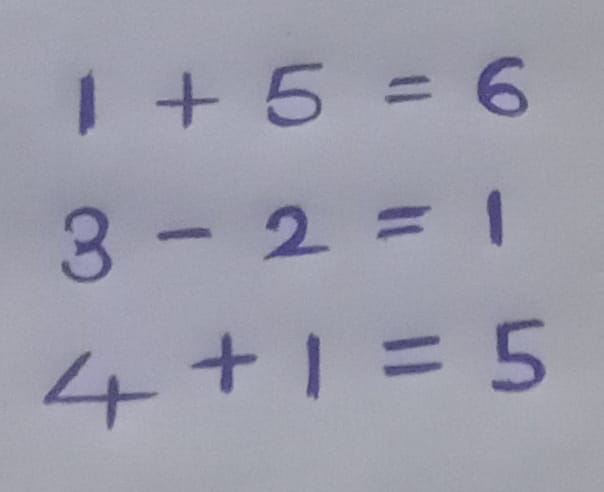 1 + 5 = 6
3 - 2 = 1
4 + 1 = 5